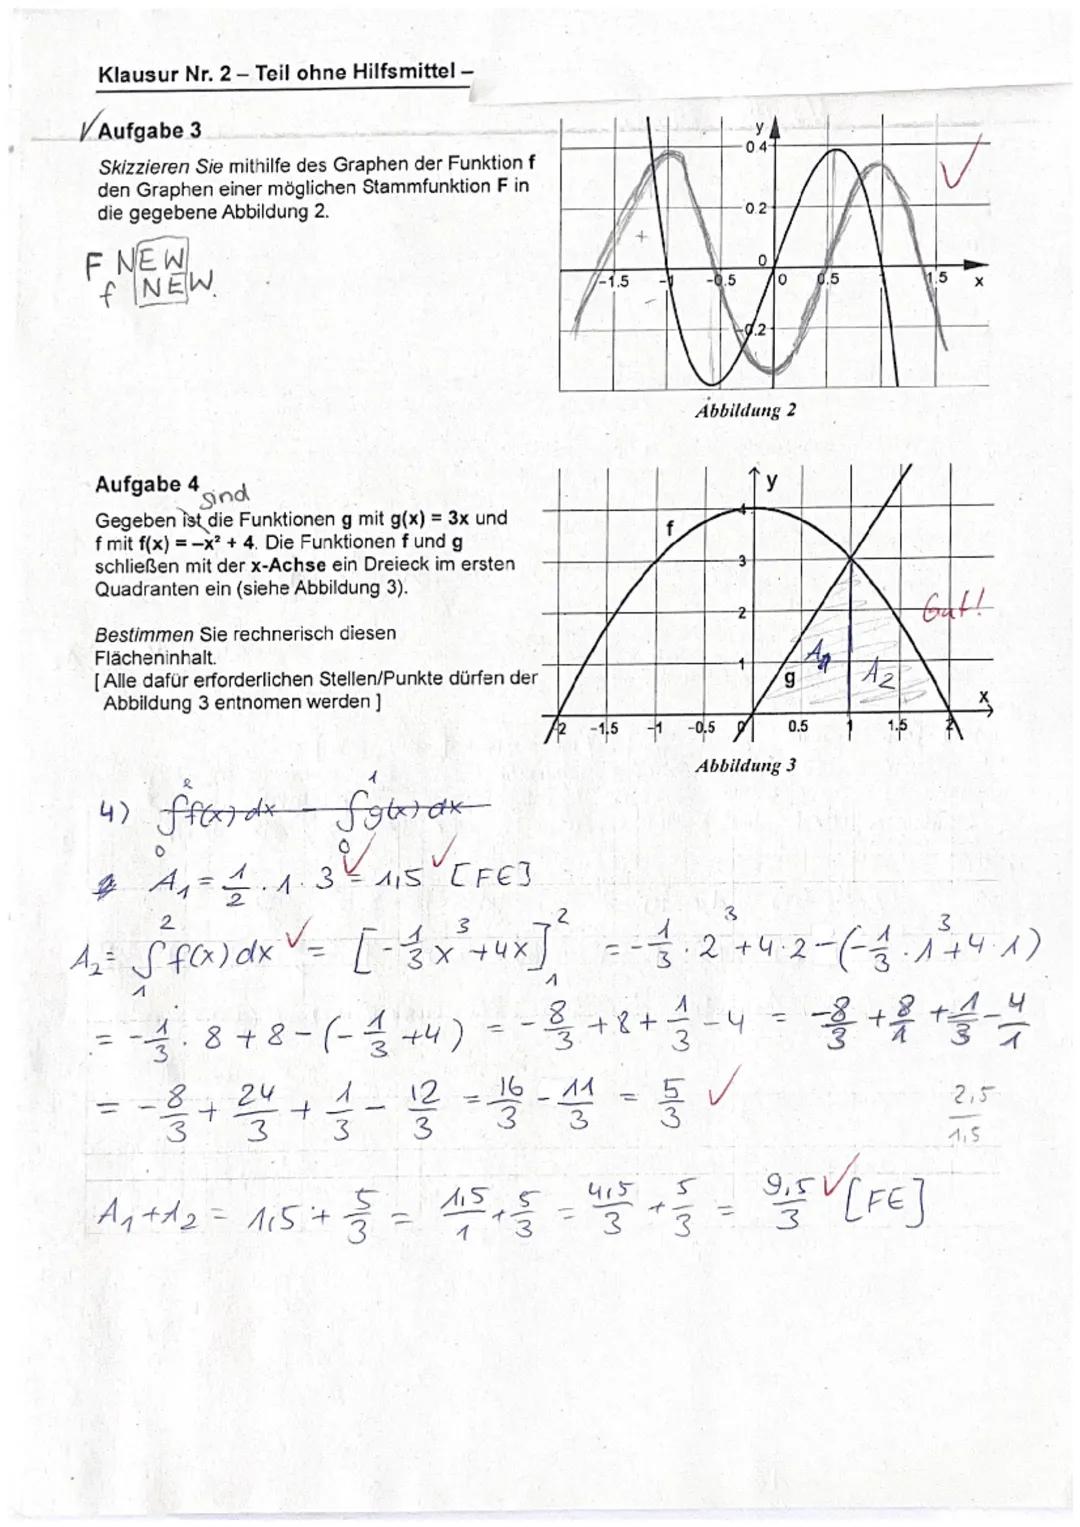 Klausur Nr. 2 – Teil ohne Hilfsmittel –
Aufgabe 3
Skizzieren Sie mithilfe des Graphen der Funktion f
den Graphen einer möglichen Stammfunktion F in
die gegebene Abbildung 2.
F NEW
f NEW.
y
0.4
0.2
0
-1.5 -1 -0.5 0 0.5 1.5 x
-0.2
+
-
Abbildung 2
Aufgabe 4
sind
Gegeben ist die Funktionen g mit g(x) = 3x und
f mit f(x) = –x² + 4. Die Funktionen f und g
schließen mit der x-Achse ein Dreieck im ersten
Quadranten ein (siehe Abbildung 3).
Bestimmen Sie rechnerisch diesen
Flächeninhalt.
[ Alle dafür erforderlichen Stellen/Punkte dürfen der
Abbildung 3 entnomen werden ]
y
f
4
3
2
1
Gut!
A1
A2
g
x
-2 -1,5 -1 -0,5 0 0.5 1 1,5 2
Abbildung 3
4) ∫₀² f(x) dx - ∫₀¹ g(x) dx
A₁ = 1/2 · 1 · 3 = 1,5 [FE]
A₂ = ∫₁² f(x) dx = [-1/3 x³ + 4x]₁² = -1/3 · 2³ + 4·2 - (-1/3 · 1³ + 4·1)
= -1/3 · 8 + 8 - (-1/3 + 4) = -8/3 + 8 + 1/3 - 4 = -8/3 + 8/1 + 1/3 - 4/1
= -8/3 + 24/3 + 1/3 - 12/3 = 16/3 - 11/3 = 5/3
2,5
1,5
A₁ + A₂ = 1,5 + 5/3 = 1,5/1 + 5/3 = 4,5/3 + 5/3 = 9,5/3 [FE]